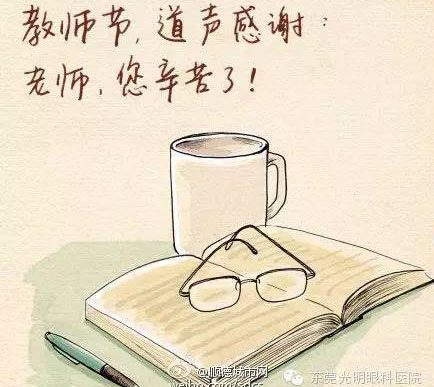 教师节,道声感谢:
老师,您辛苦了!
@顺德城市网
weibo.com/sdcs
东莞光明眼科医院